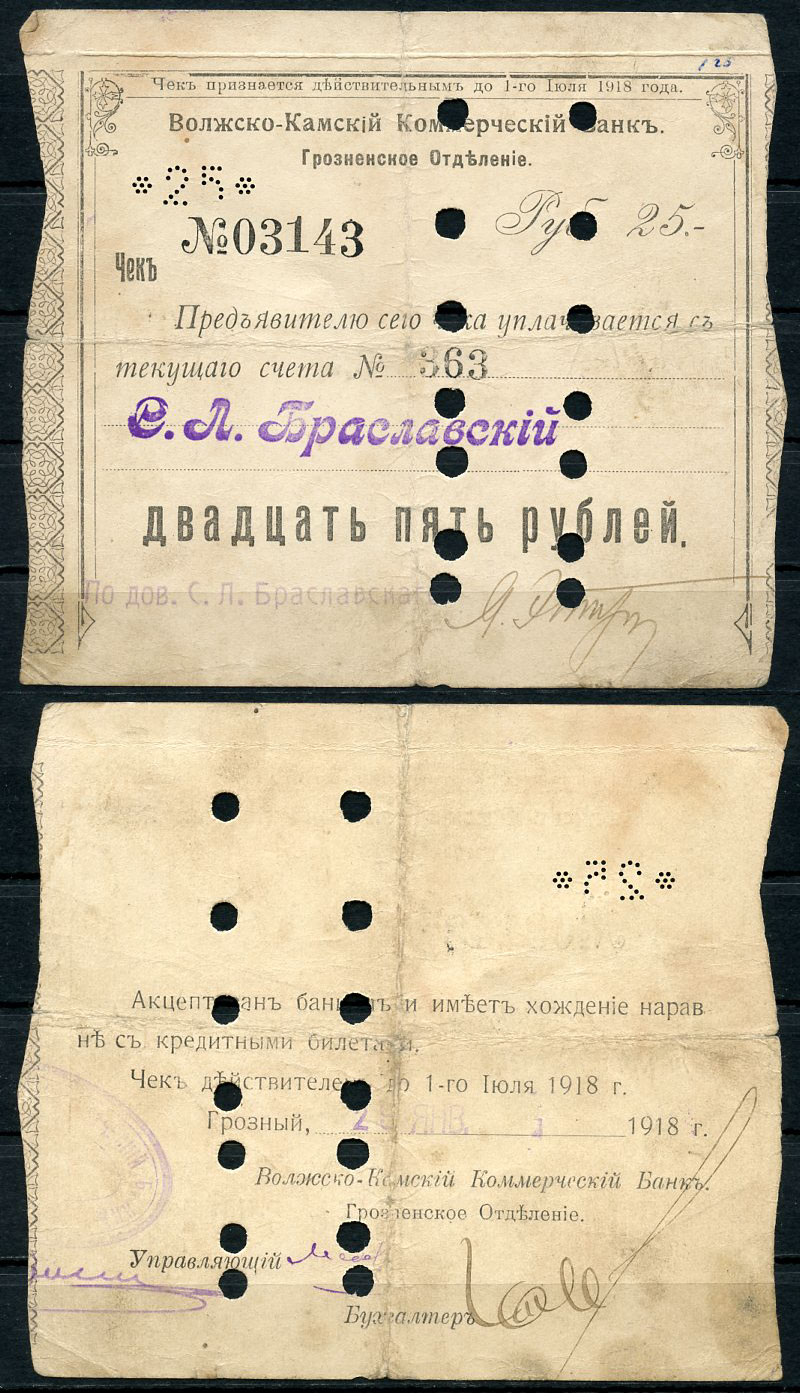 125
Чекъ признается дѣйствительнымъ до 1-го Іюля 1918 года.
Волжско-Камскій Коммерческій Банкъ.
Грозненское Отдѣленіе.
*25*
№03143
Руб 25.-
Чекъ
Предъявителю сего чека уплачивается съ
текущаго счета № 363
С. Л. Браславскій
двадцать пять рублей.
По дов. С. Л. Браславскаго
Акцептованъ банкомъ и имѣетъ хожденіе нарав
нѣ съ кредитными билетами.
Чекъ дѣйствителенъ до 1-го Іюля 1918 г.
Грозный, ЯНВ. 1918 г.
Волжско-Камскій Коммерческій Банкъ.
Грозненское Отдѣленіе.
Управляющій
Бухгалтеръ